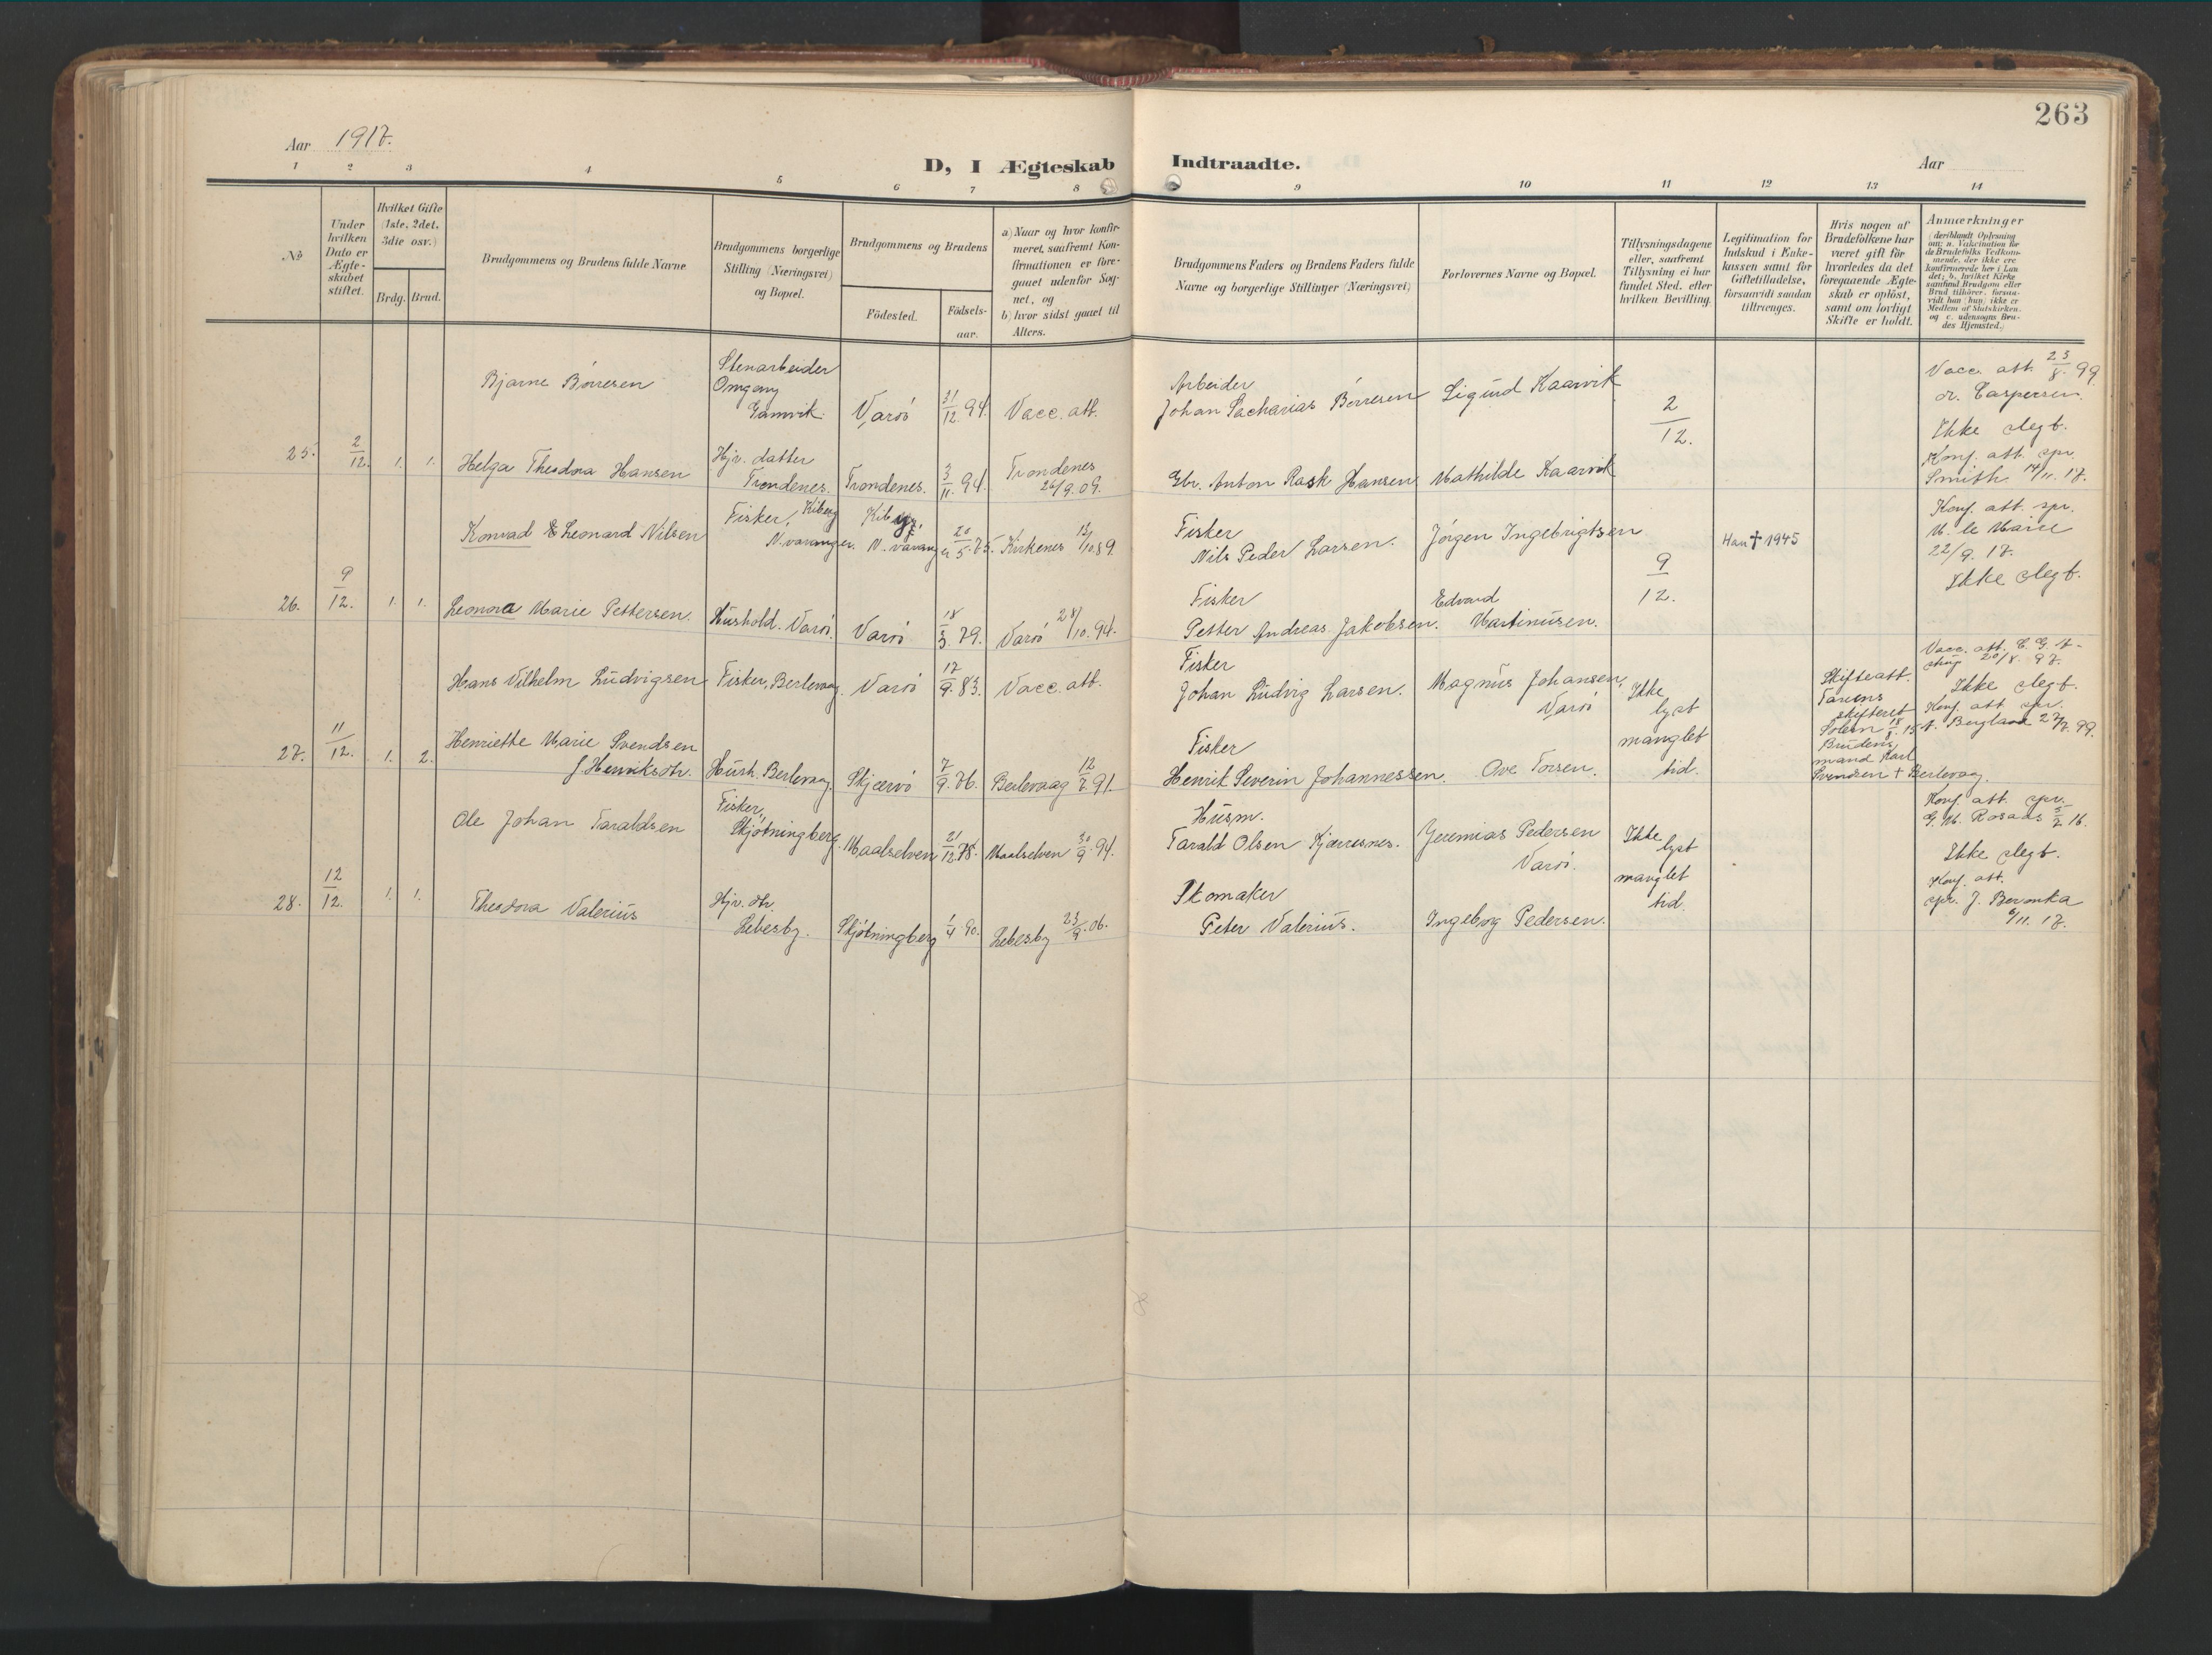 263
Aar 1917.
D, I Ægteskab Indtraadte.
Aar
1 2 3 4 5 6 7 8 9 10 11 12 13 14
No
Under
hvilken
Dato er
Ægte-
skabet
stiftet.
Hvilket Gifte
(1ste, 2det,
3die osv.)
Brdg. Brud.
Brudgommens og Brudens fulde Navne
Brudgommens borgerlige
Stilling (Næringsvei)
og Bopæl.
Brudgommens og Brudens
Födested.
Födsels-
aar.
a) Naar og hvor konfir-
meret, saafremt Kon-
firmationen er fore-
gaaet udenfor Sog-
net, og
b) hvor sidst gaaet til
Alters.
Brudgommens Faders og Brudens Faders fulde
Navne og borgerlige Stillinger (Næringsvei)
Forlovernes Navne og Bopæl.
Tillysningsdagene
eller, saafremt
Tillysning ei har
fundet Sted, efter
hvilken Bevilling.
Legitimation for
Indskud i Enke-
kassen samt for
Giftetilladelse,
forsaavidt saadan
tiltrænges.
Hvis nogen af
Brudefolkene har
været gift för
hvorledes da det
foregaaende Ægte-
skab er oplöst,
samt om lovligt
Skifte er holdt.
Anmærkninger
(deriblandt Oplysning
om: a. Vakcination for
de Brudefolks Vedkom-
mende, der ikke ere
konfirmerede her i Lan
det; b. hvilket Kirke
samfund Brudgom eller
Brud tilhörer, forsaa-
vidt han (hun) ikke er
Medlem af Statskirken,
og c. udensogns Bru-
des Hjemsted.)
Bjarne Börresen
Stenarbeider
Omgang
Gamvik.
Varöi
31/12 94.
Vacc. att.
Arbeider
Johan Sacharias Börresen
Sigurd Kaarvik
2/12.
Vacc. att. 23/8. 99
dr. Caspersen.
Ikke slegt.
25. 2/12. 1. 1.
Helga Theodora Hansen
Hjv. datter
Trondenes.
Trondenes.
3/11. 94.
Trondenes
26/9.09.
Gbr. Anton Rask Hansen
Mathilde Kaarvik
Konf. att. spr.
Smith 14/11. 17.
Konrad & Leonard Nilsen
Fisker, Kiberg
N. varanger.
Kiberg,
N. varanger
20/5.75.
Kirkenes 13/10.89.
Fisker
Nils Peder Larsen.
Jörgen Ingebrigtsen
9/12.
Han † 1945
Konf. att. spr.
M. le Maire
22/9. 17.
Ikke slegt.
26. 9/12. 1. 1.
Leonora Marie Pettersen.
Hushold. Varöi.
Varöi
18/3. 79.
Varöi 28/10. 94.
Fisker
Petter Andreas Jakobsen.
Edvard
Martinusen.
Hans Vilhelm Ludvigsen
Fisker, Berlevaag.
Varöi
17/9. 83.
Vacc. att.
Fisker
Johan Ludvig Larsen.
Magnus Johansen,
Varöi
Ikke
lyst
manglet
tid.
Skifteatt.
Tanens
skifteret
18/8. 15.
Brudens
mand Karl
Svendsen † Berlevag.
Vacc. att.
20/8. 97.
Ikke slegt.
Konf. att. spr.
Bergland 27/7. 99.
27. 11/12. 1. 2.
Henriette Marie Svendsen
f. Henriksdtr.
Hush. Berlevaag.
Skjærvö
7/9. 76.
Berlevaag 12/7. 91.
Fisker
Henrik Severin Johannessen.
Ove Torsen.
Ole Johan Taraldsen
Fisker,
Skjötningberg.
Maalselven
21/12.78.
Maalselven 30/9. 94.
Husm.
Tarald Olsen Kjærresnes.
Jeremias Pedersen
Varöi.
Ikke
lyst
manglet
tid.
Konf. att. spr.
G. M. Rosaas 5/2. 16.
Ikke slegt.
28. 12/12. 1. 1.
Theodora Valerius
Hjv. dtr.
Lebesby.
Skjötningberg
1/4. 90.
Lebesby 23/9. 06.
Skomaker
Peter Valerius.
Ingeborg Pedersen.
Konf. att.
spr. J. Beronka
6/11. 17.